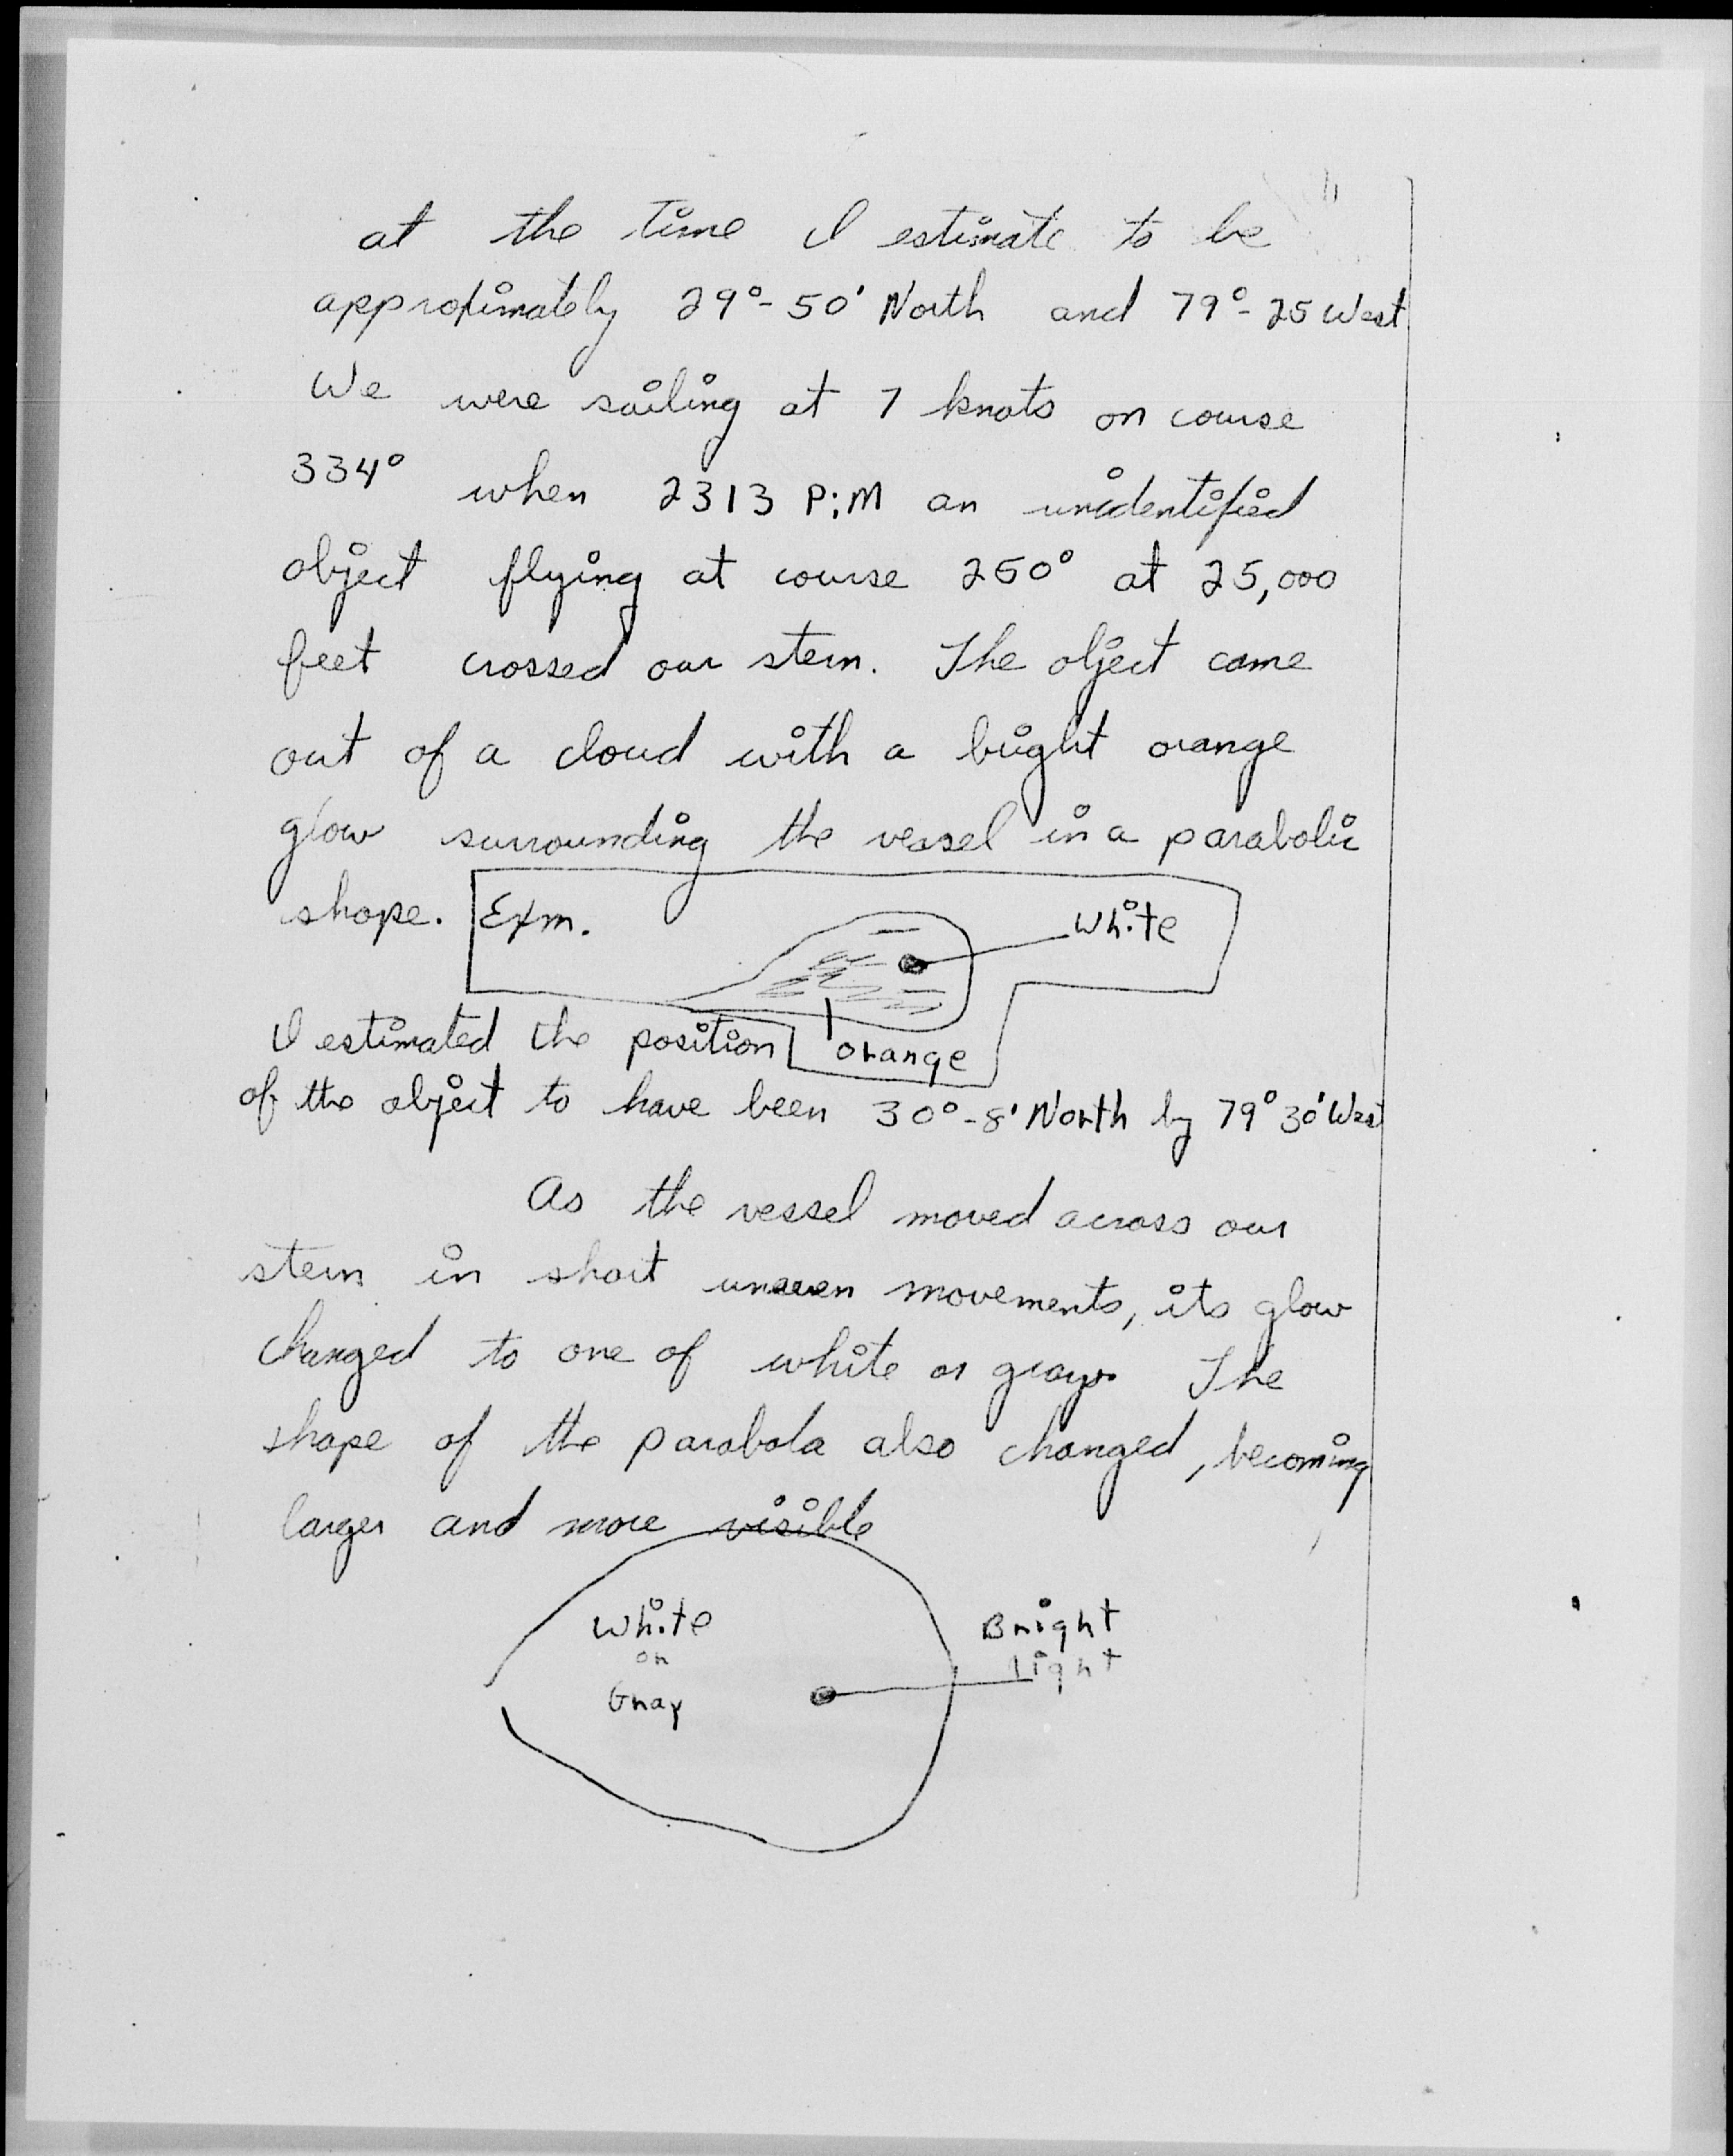 at the time I estimate to be
approximately 29°-50' North and 79°-25 West
We were sailing at 7 knots on course
334° when 2313 P:M an unidentified
object flying at course 260° at 25,000
feet crossed our stern. The object came
out of a cloud with a bright orange
glow surrounding the vessel in a parabolic
shape. Exm.
White
orange
I estimated the position
of the object to have been 30°-8' North by 79° 30' West
As the vessel moved across our
stern in short uneven movements, its glow
changed to one of white or gray. The
shape of the parabola also changed, becoming
larger and more visible
White
or
Gray
Bright
Light